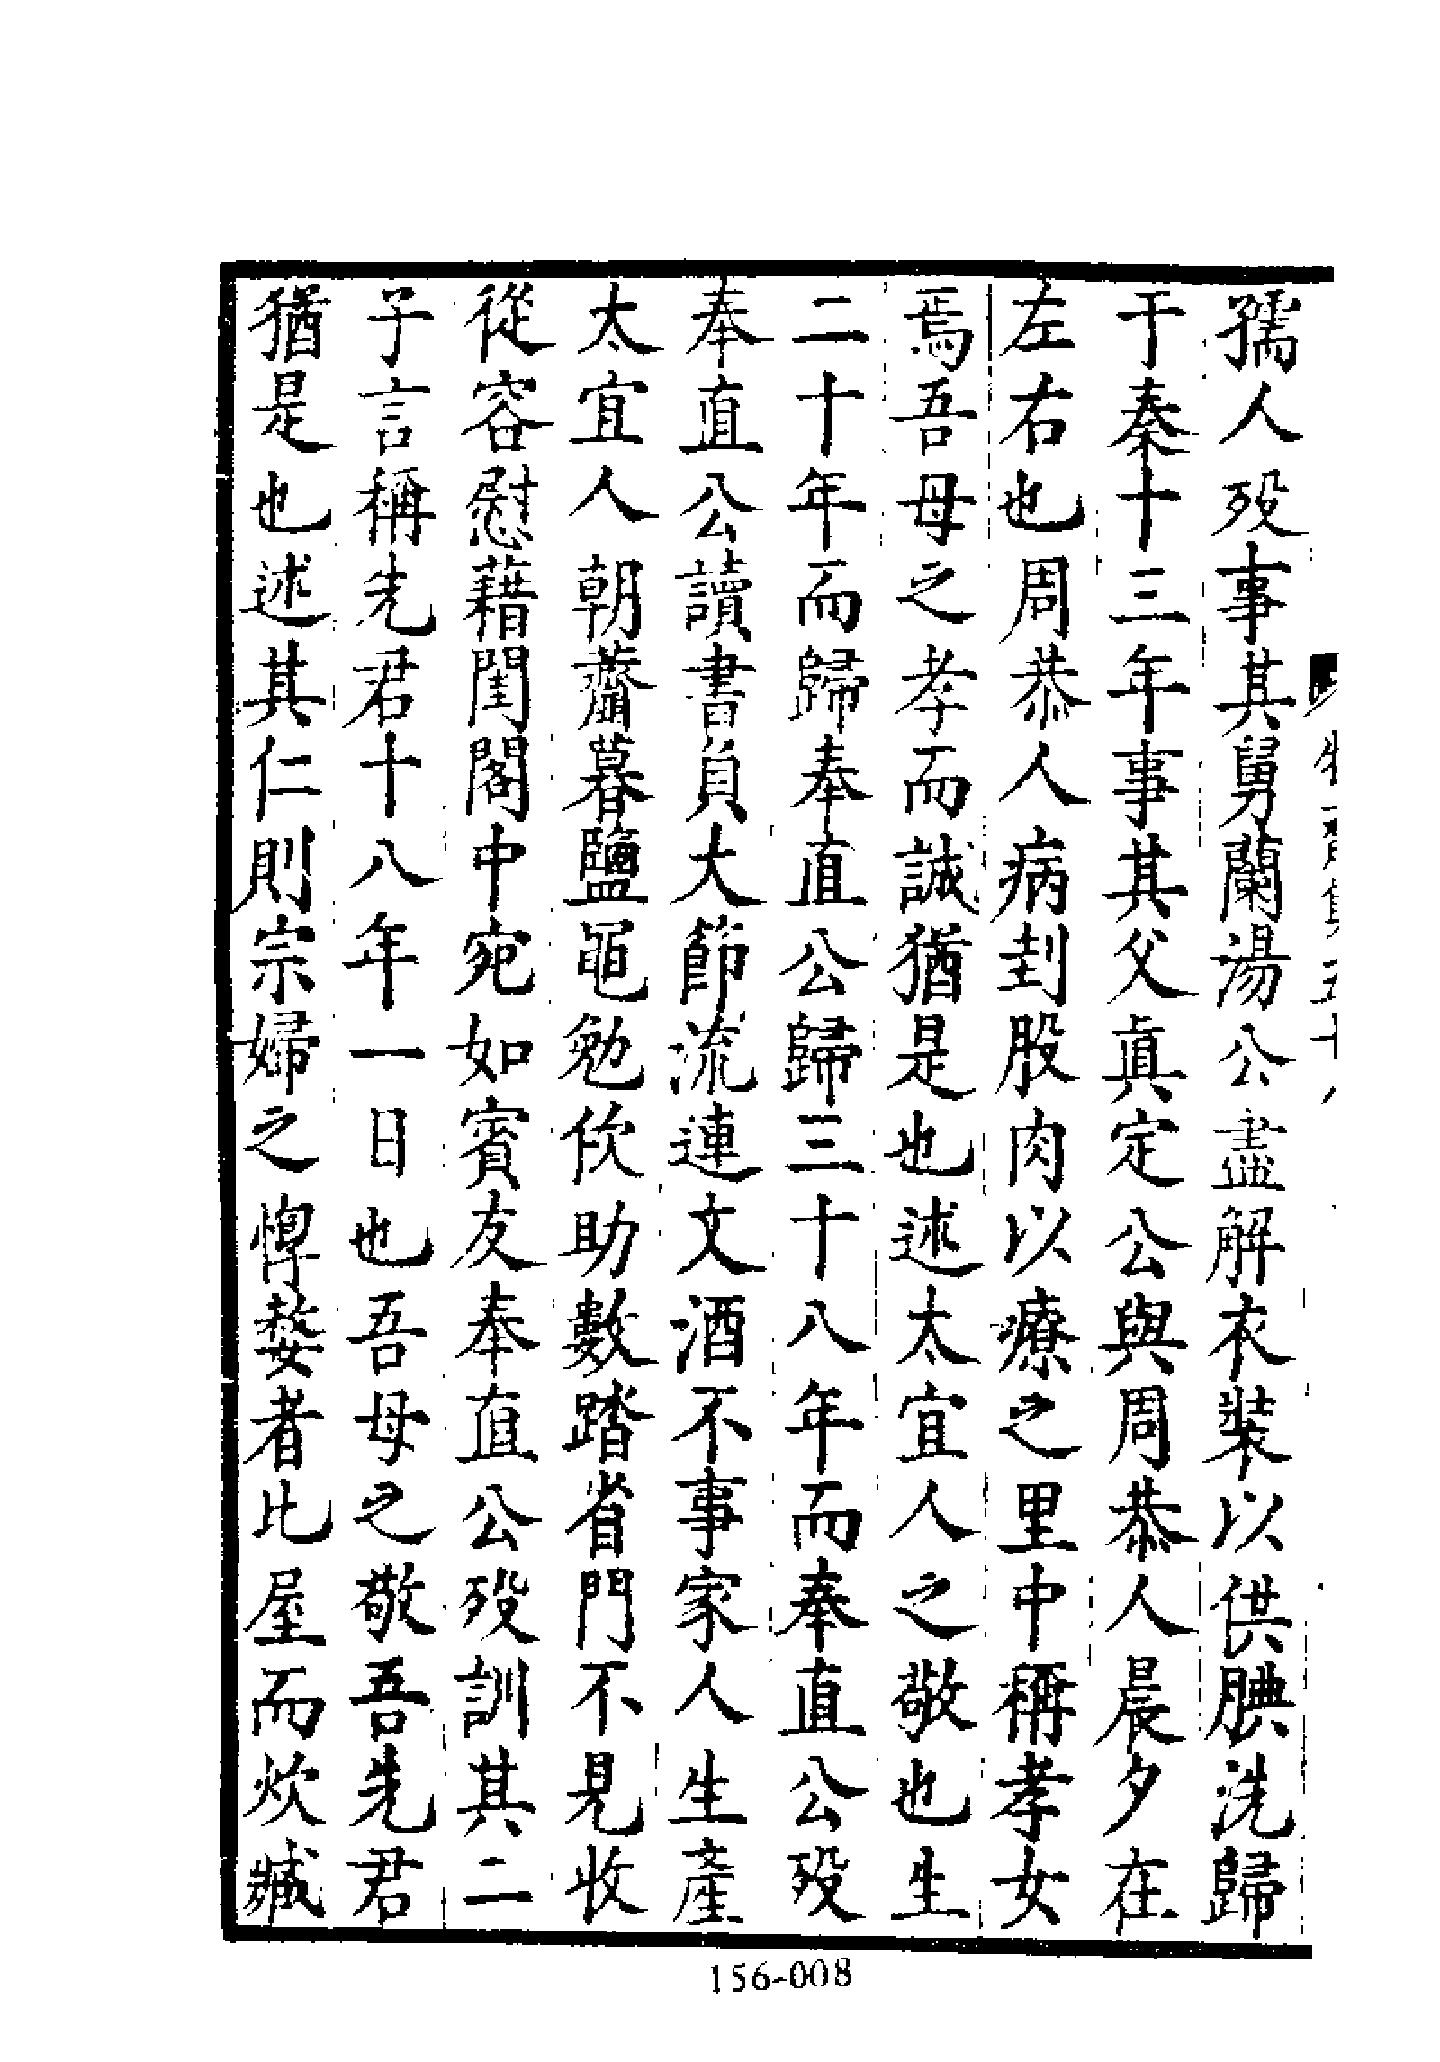 孺人歿事其舅蘭湯公盡解衣裝以供腆洗歸
于秦十三年事其父真定公與周恭人晨夕在
左右也周恭人病刲股肉以療之里中稱孝女
焉吾母之孝而誠猶是也述太宜人之敬也生
二十年而歸奉直公歸三十八年而奉直公歿
奉直公讀書負大節流連文酒不事家人生產
太宜人朝虀暮鹽黽勉佽助數踏省門不見收
從容慰藉閨閣中宛如賓友奉直公歿訓其二
子言稱先君十八年一日也吾母之敬吾先君
猶是也述其仁則宗婦之惸嫠者比屋而炊臧
156-008